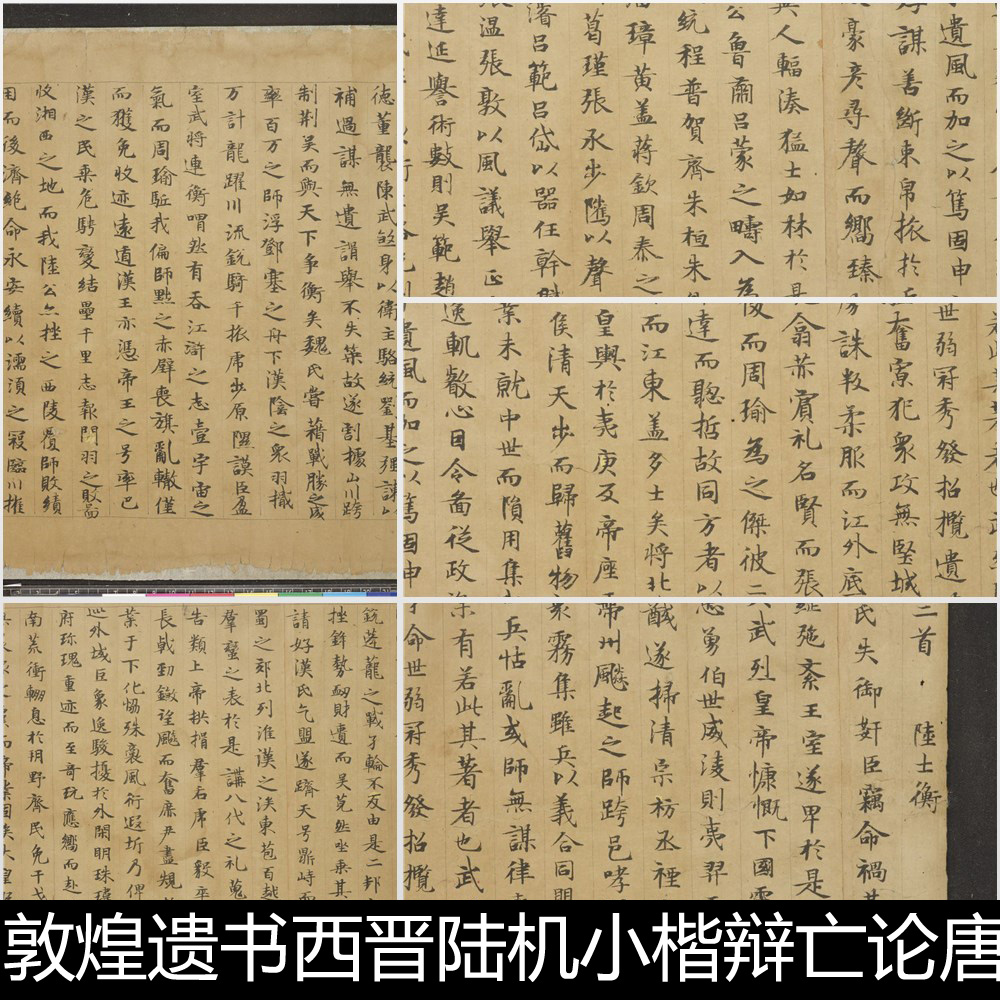 德董襲陳武煞身以衛主駱統劉基強諫以
補過謀無遺諝舉不失策故遂割據山川跨
制荊吳而與天下爭衡矣魏氏嘗藉戰勝之威
率百万之師浮鄧塞之舟下漢陰之衆羽檝
万計龍躍川流銳騎千旅虎步原隰謨臣盈
室武將連衡喟然有吞江滸之志壹宇宙之
氣而周瑜駈我偏師黜之赤壁喪旗亂轍僅
而獲免收迹遠遁漢王亦憑帝王之号率巴
漢之民乘危騁變結壘千里志報關羽之敗啚
收湘西之地而我陸公亦挫之西陵覆師敗績
困而後濟絕命永安續以濡須之寇臨川摧
遺風而加之以篤固申
謀善斷束帛旅於丘
豪彥尋聲而嚮臻
異人輻湊猛士如林於是
公魯肅呂蒙之疇入為
統程普賀齊朱桓朱
璋黃盖蔣欽周泰之
葛瑾張承步騭以聲
濬呂範呂岱以器任幹
張温張敦以風議舉正
達延譽術數則吴範趙
世弱冠秀發招攬遺
奮寡犯衆攻無堅城
誅叛柔服而江外底
翕茲賓礼名賢而張
而周瑜為之傑彼二
達而聦哲故同方者以
而江東盖多士矣將北
皇輿於夷庚反帝座
侯清天步而歸舊物
業未就中世而隕用集
逸軌叡心因令啚從政
遺風而加之以篤固申
蓬蘢之戰孑輪不反由是二邦
挫鋒勢衂財遺而吴莞然坐乘其
請好漢氏乞盟遂躋天号鼎峙而
蜀之郊北列淮漢之涘東苞百越
羣蠻之表於是講八代之礼蒐
告類上帝拱揖羣后虎臣毅卒
長戟勁鎩望飈而奮庶尹盡規
業于下化恊殊裔風衍遐圻乃俾
巡外域巨象逸駿擾於外閑明珠瑋
府珎瑰重迹而至奇玩應嚮而赴
南荒衝輣息於玥野齊民免干戈
二首 陸士衡
民失御奸臣竊命禍
弛紊王室遂卑於是
武烈皇帝慷慨下國電
勇伯世威淩則夷羿
醎遂掃清宗祊丞禋
帶州飈起之師跨邑哮
霧集雖兵以義合同
兵怙亂或師無謀律
有若此其著者也武
命世弱冠秀發招攬
敦煌遗书西晋陆机小楷辩亡论唐